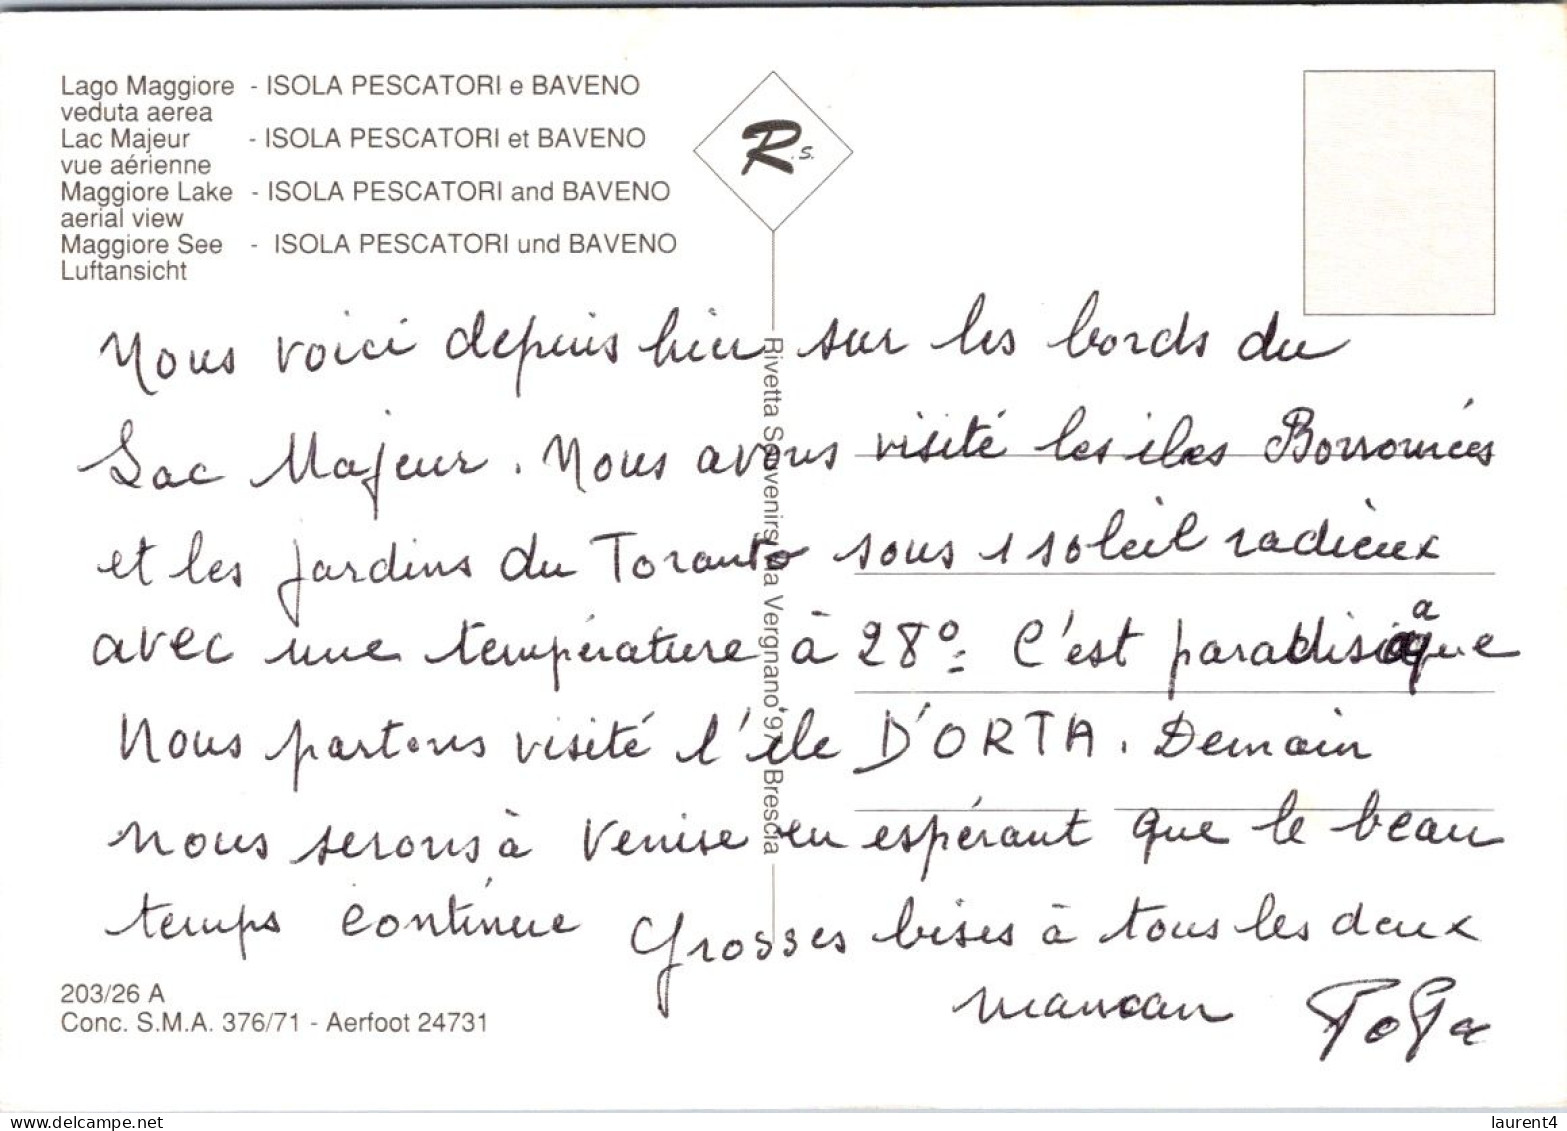 Lago Maggiore - ISOLA PESCATORI e BAVENO
veduta aerea
Lac Majeur - ISOLA PESCATORI et BAVENO
vue aérienne
Maggiore Lake - ISOLA PESCATORI and BAVENO
aerial view
Maggiore See - ISOLA PESCATORI und BAVENO
Luftansicht
R.S.
Rivetta Souvenirs Via Vergnano 97 Brescia
Nous voici depuis hier sur les bords du
Lac Majeur. Nous avons visité les îles Borromées
et les jardins du Toranto sous 1 soleil radieux
avec une température à 28°. C'est paradisiaque
Nous partons visité l'île D'ORTA. Demain
nous serons à Venise en espérant que le beau
temps continue Grosses bises à tous les deux
maman Papa
203/26 A
Conc. S.M.A. 376/71 - Aerfoot 24731
laurent4